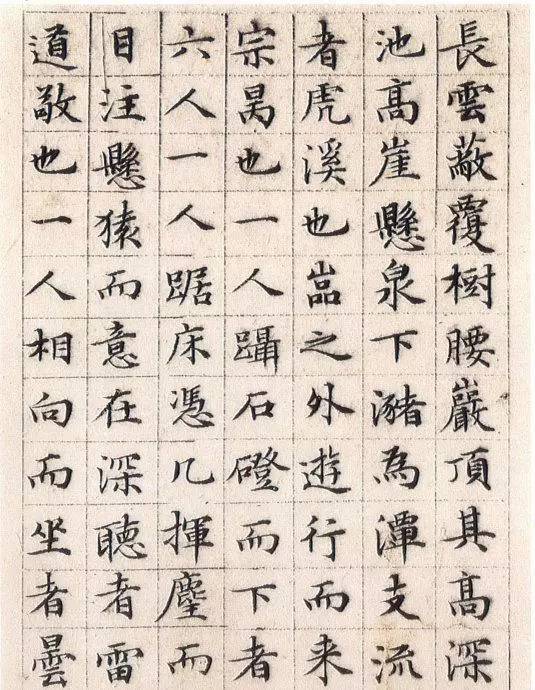 長雲蔽覆樹腰巖頂其高深
池高崖懸泉下瀦為潭支流
者虎溪也嵓之外遊行而来
宗昺也一人躡石磴而下者
六人一人踞床凭几揮麈而
目注懸猿而意在深聽者雷
道敬也一人相向而坐者曇